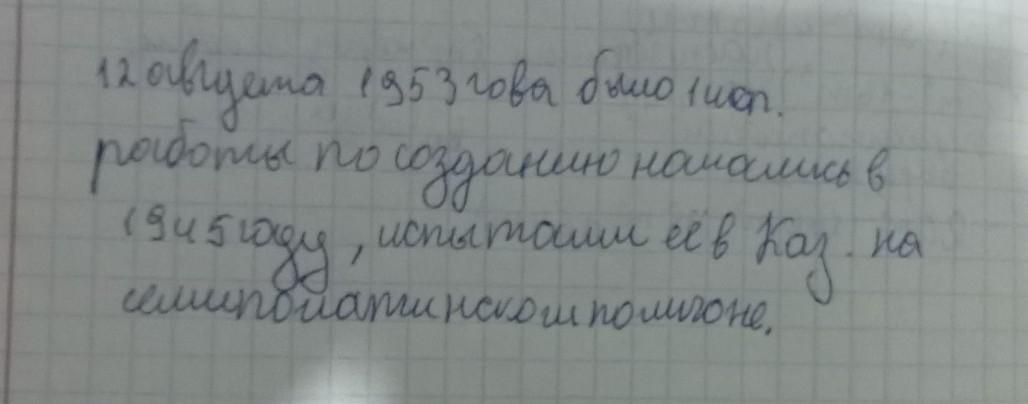 12 августа 1953 года было 1 исп.
работы по созданию начались в
1945 году, испытали её в Каз. на
семипалатинском полигоне.